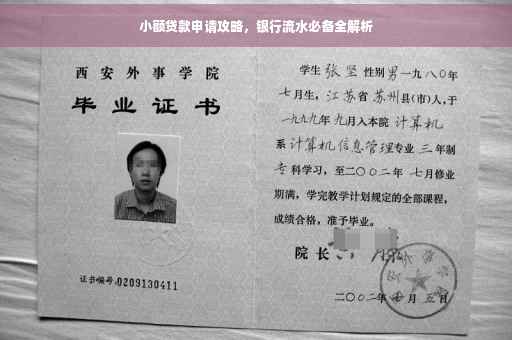 小额贷款申请攻略，银行流水必备全解析
西安外事学院
毕业证书
证书编号:0209130411
学生 张坚 性别 男 一九八〇年
七月生，江苏省 苏州县(市)人，于
一九九九年 九月入本院 计算机
系 计算机信息管理专业 三 年制
专 科学习，至二〇〇二年 七月修业
期满，学完教学计划规定的全部课程，
成绩合格，准予毕业。
院长
二〇〇二年 月 五日